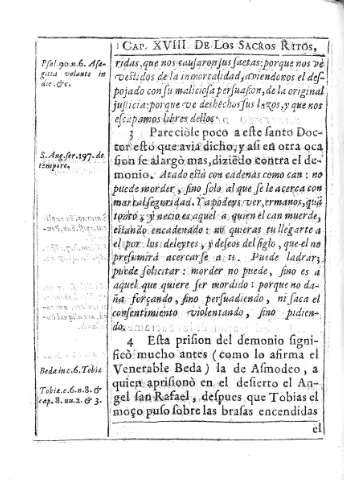 CAP. XVIII. DE LOS SACROS RITOS,
Psal. 90. n. 6. A sa-
gitta volante in
die. &c.
ridas, que nos causaron sus saetas: porque nos vè
vestidos de la inmortalidad, aviendonos el des-
pojado con su maliciosa persuasion, de la original
justicia: porque ve deshechos sus lazos, y que nos
escapamos libres dellos.
3 Pareciòle poco a este santo Doc-
S. Aug. ser. 197. de
tempore.
tor esto que avia dicho, y asi en otra oca
sion se alargò mas, diziẽdo contra el de-
monio. Atado està con cadenas como can: no
puede morder, sino solo al que se le acerca con
mortal seguridad. Ya podeys ver, ermanos, quã
tonto, y necio es aquel a quien el can muerde,
estando encadenado: no quieras tu llegarte a
el por los deleytes, y deseos del siglo, que el no
presumirà acercarse a ti. Puede ladrar;
puede solicitar: morder no puede, sino es a
aquel que quiere ser mordido: porque no da-
ña forçando, sino persuadiendo, ni saca el
consentimiento violentando, sino pidien-
do.
4 Esta prision del demonio signi-
ficò mucho antes (como lo afirma el
Beda in c. 6. Tobiæ
Venerable Beda) la de Asmodeo, a
Tobiæ c. 6. n. 8. &
cap. 8. nu. 2. & 3.
quien aprisionò en el desierto el An-
gel san Rafael, despues que Tobias el
moço puso sobre las brasas encendidas
el